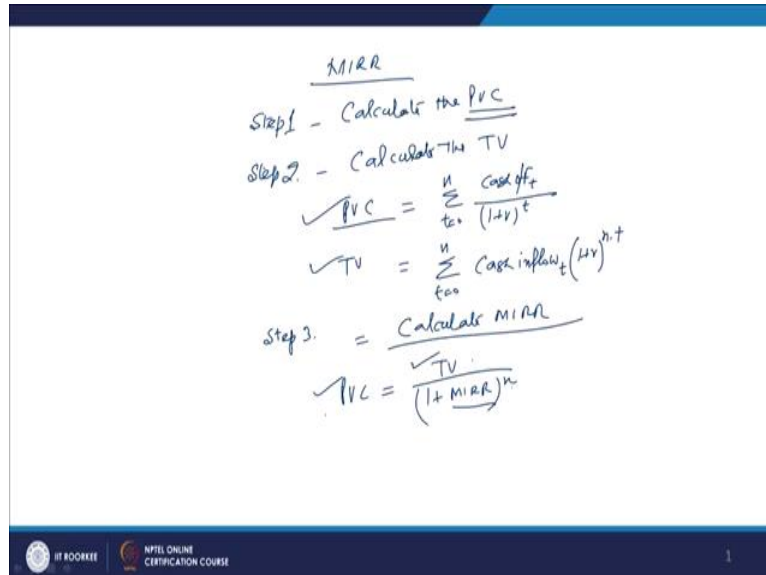 MIRR
Step1 - Calculate the PVC
Step2. - Calculate The TV
PVC = n Σ t=0 Cash o/f t / (1+r)^t
TV = n Σ t=0 Cash inflow t (1+r)^n-t
Step 3. = Calculate MIRR
PVC = TV / (1+ MIRR)^n
IIT ROORKEE
NPTEL ONLINE
CERTIFICATION COURSE
1